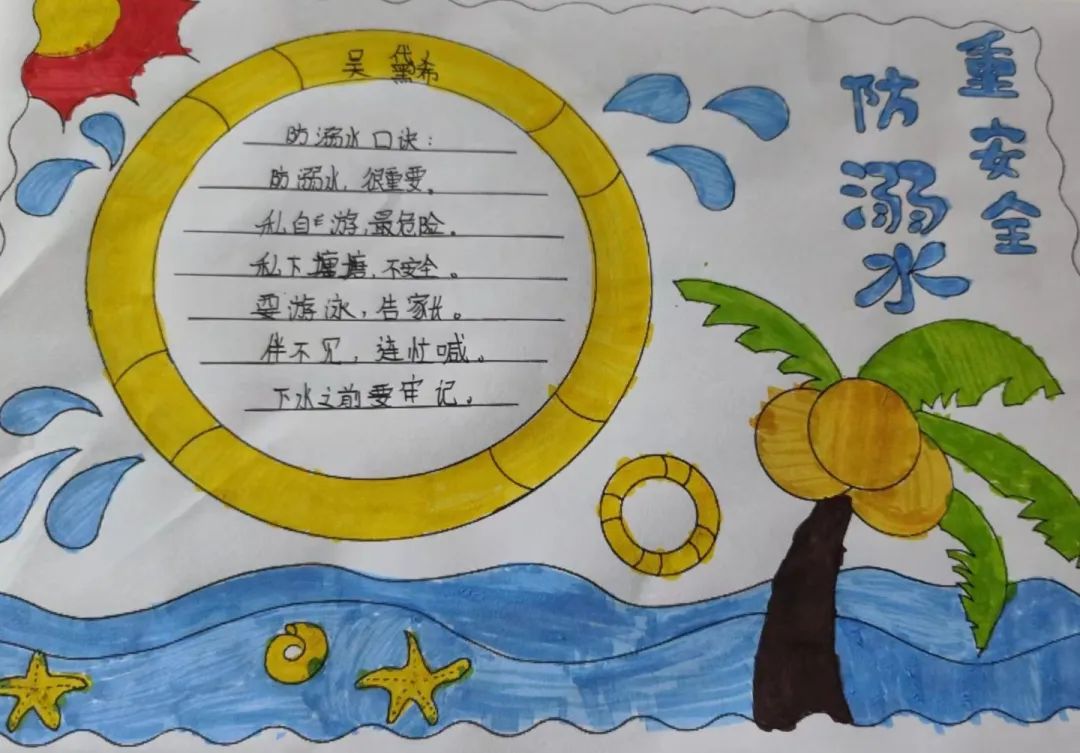 重安全
防溺水
吴黛希
防溺水口诀：
防溺水，很重要。
私自游，最危险。
私下塘塘，不安全。
要游泳，告家长。
伴不见，连忙喊。
下水之前要牢记。